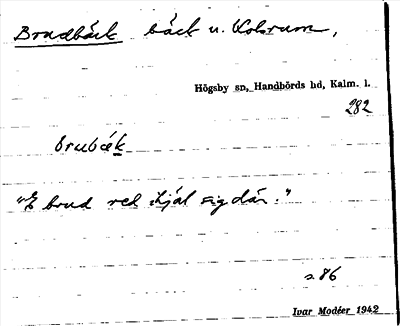 Brudbäck bäck u. Kolsrum,
Högsby sn, Handbörds hd, Kalm. l.
282
brubäk
"E brud red ihjäl sig där."
s 86
Ivar Modéer 1942